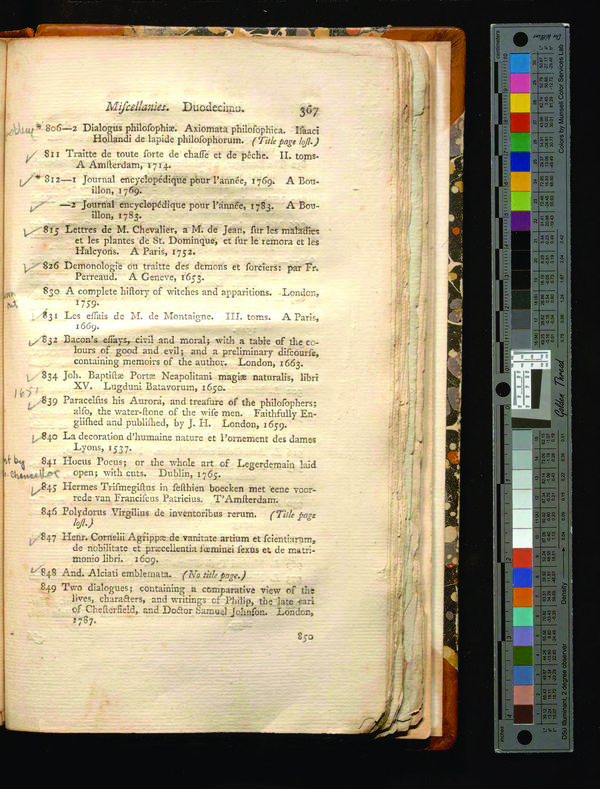 Miſcellanies. Duodecimo. 367
* 806—2 Dialogus philoſophiæ. Axiomata philoſophica. Iſaaci
Hollandi de lapide philoſophorum. (Title page loſt.)
811 Traitte de toute ſorte de chaſſe et de pêche. II. toms.
A Amſterdam, 1714.
* 812—1 Journal encyclopédique pour l'année, 1769. A Bou-
illon, 1769.
—2 Journal encyclopédique pour l'année, 1783. A Bou-
illon, 1783.
815 Lettres de M. Chevalier, a M. de Jean, ſur les maladies
et les plantes de St. Dominque, et ſur le remora et les
Halcyons. A Paris, 1752.
826 Demonologie ou traitte des demons et ſorciers: par Fr.
Perreaud. A Geneve, 1653.
830 A complete hiſtory of witches and apparitions. London,
1759.
831 Les eſſais de M. de Montaigne. III. toms. A Paris,
1669.
832 Bacon's eſſays, civil and moral; with a table of the co-
lours of good and evil; and a preliminary diſcourſe,
containing memoirs of the author. London, 1663.
834 Joh. Baptiſtæ Portæ Neapolitani magiæ naturalis, libri
XV. Lugduni Batavorum, 1650.
1651
839 Paracelſus his Aurora, and treaſure of the philoſophers;
alſo, the water-ſtone of the wiſe men. Faithfully En-
gliſhed and publiſhed, by J. H. London, 1659.
840 La decoration d'humaine nature et l'ornement des dames
Lyons, 1537.
841 Hocus Pocus; or the whole art of Legerdemain laid
open; with cuts. Dublin, 1765.
by
chancellor
845 Hermes Triſmegiſtus in ſeſthien boecken met eene voor-
rede van Franciſcus Patricius. T'Amſterdam.
846 Polydorus Virgilius de inventoribus rerum. (Title page
loſt.)
847 Henr. Cornelii Agrippæ de vanitate artium et ſcientiarum,
de nobilitate et præcellentia fœminei ſexus et de matri-
monio libri. 1609.
848 And. Alciati emblemata. (No title page.)
849 Two dialogues; containing a comparative view of the
lives, characters, and writings of Philip, the late earl
of Cheſterfield, and Doctor Samuel Johnſon. London,
1787.
850
Colors by Munsell Color Services Lab
Golden Thread
Density
D50 Illuminant, 2 degree observer